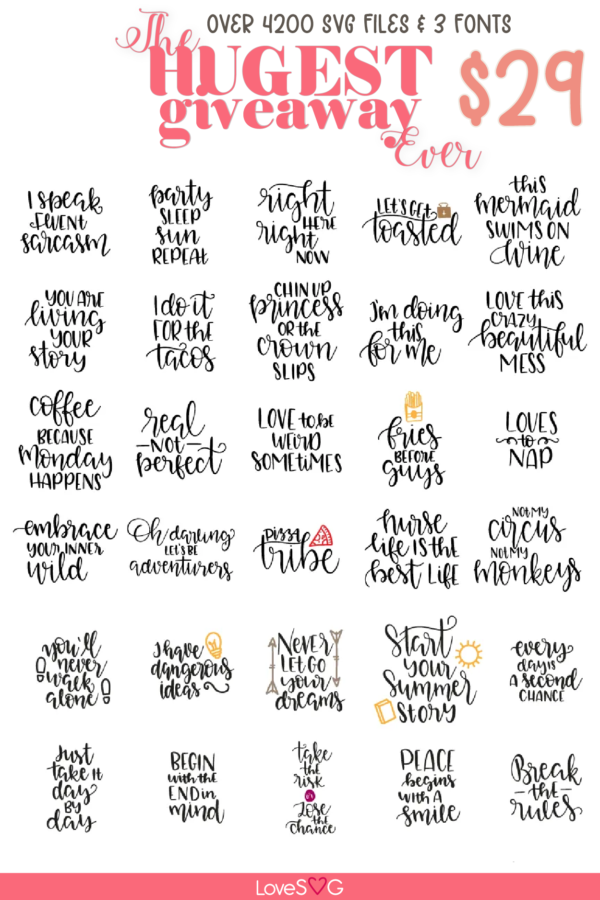 OVER 4200 SVG FILES & 3 FONTS
The
HUGEST
giveaway
Ever
$29
I speak
fluent
sarcasm
party
SLEEP
sun
REPEAt
right
HERE
right
NOW
LET'S GET
toasted
this
mermaid
SWIMS ON
wine
YOU ARE
living
YOUR
story
I do it
FOR the
tacos
CHIN UP
princess
OR the
crown
SLIPS
I'm doing
this
for me
LOVE this
CRAZY
beautiful
MESS
coffee
BECAUSE
Monday
HAPPENS
real
-NOT-
perfect
LOVE to be
WEIRD
SOMEtiMES
fries
BEFORE
guys
LOVES
to
NAP
embrace
YOUR INNER
wild
Oh darling
LET'S BE
adventurers
pizza
tribe
nurse
life IS the
best LIFE
NOT MY
circus
NOT MY
monkeys
you'll
never
walk
alone
I have
dangerous
ideas
NEVER
LET GO
your
dreams
Start
your
Summer
story
every
day is
A second
CHANCE
Just
take it
day
BY
day
BEGIN
with the
END in
mind
take
the
risk
or
Lose
the
chance
PEACE
begins
WITH A
smile
Break
-the-
rules
LoveSVG